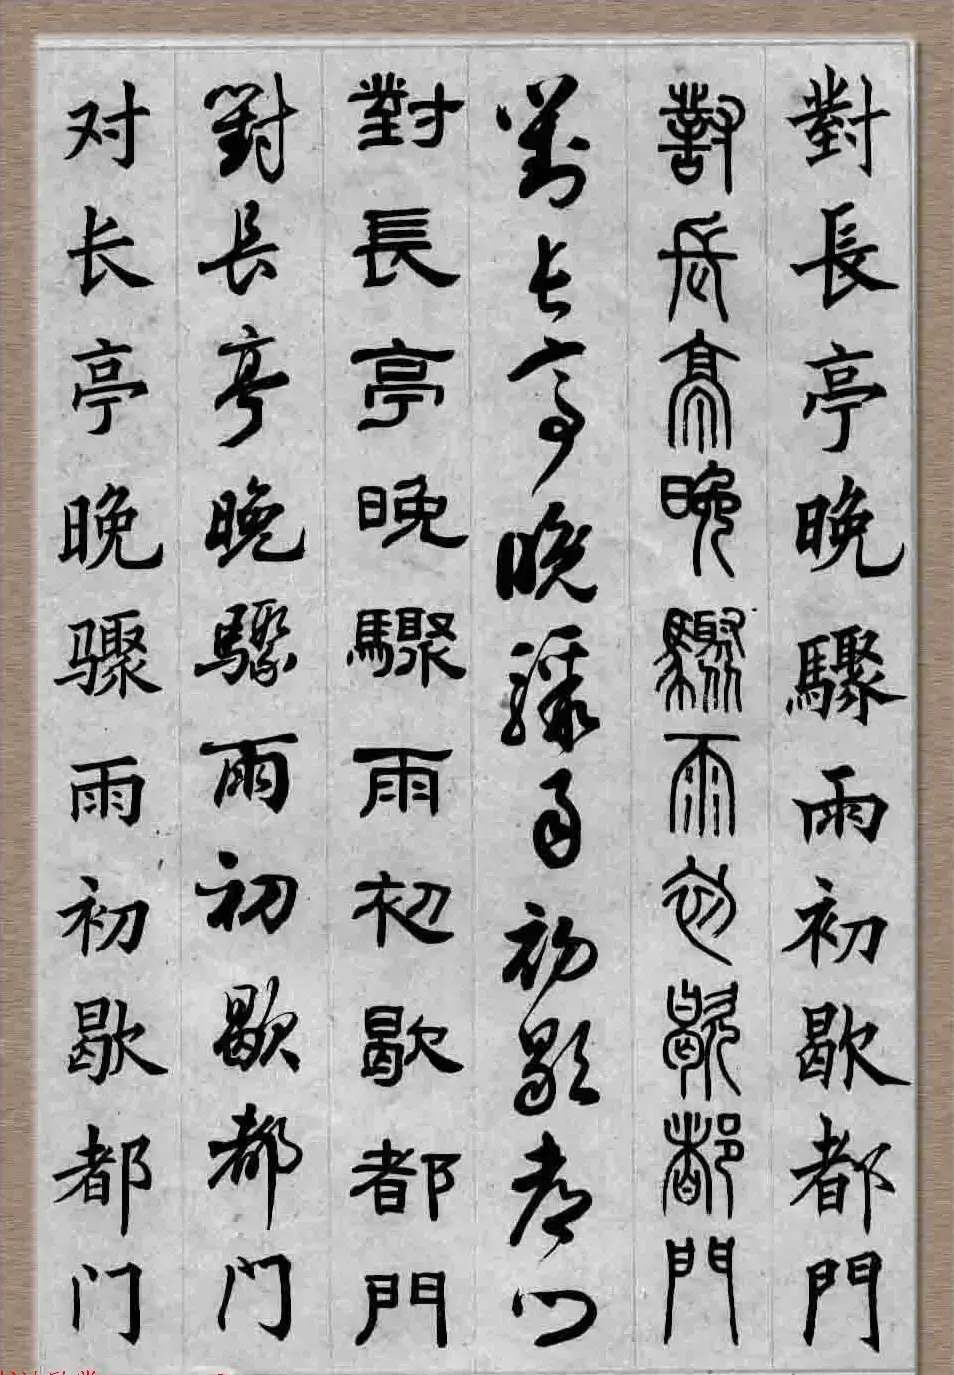 對長亭晚驟雨初歇都門
對長亭晚驟雨初歇都門
對長亭晚驟雨初歇都門
對長亭晚驟雨初歇都門
對長亭晚驟雨初歇都门
对长亭晚骤雨初歇都门